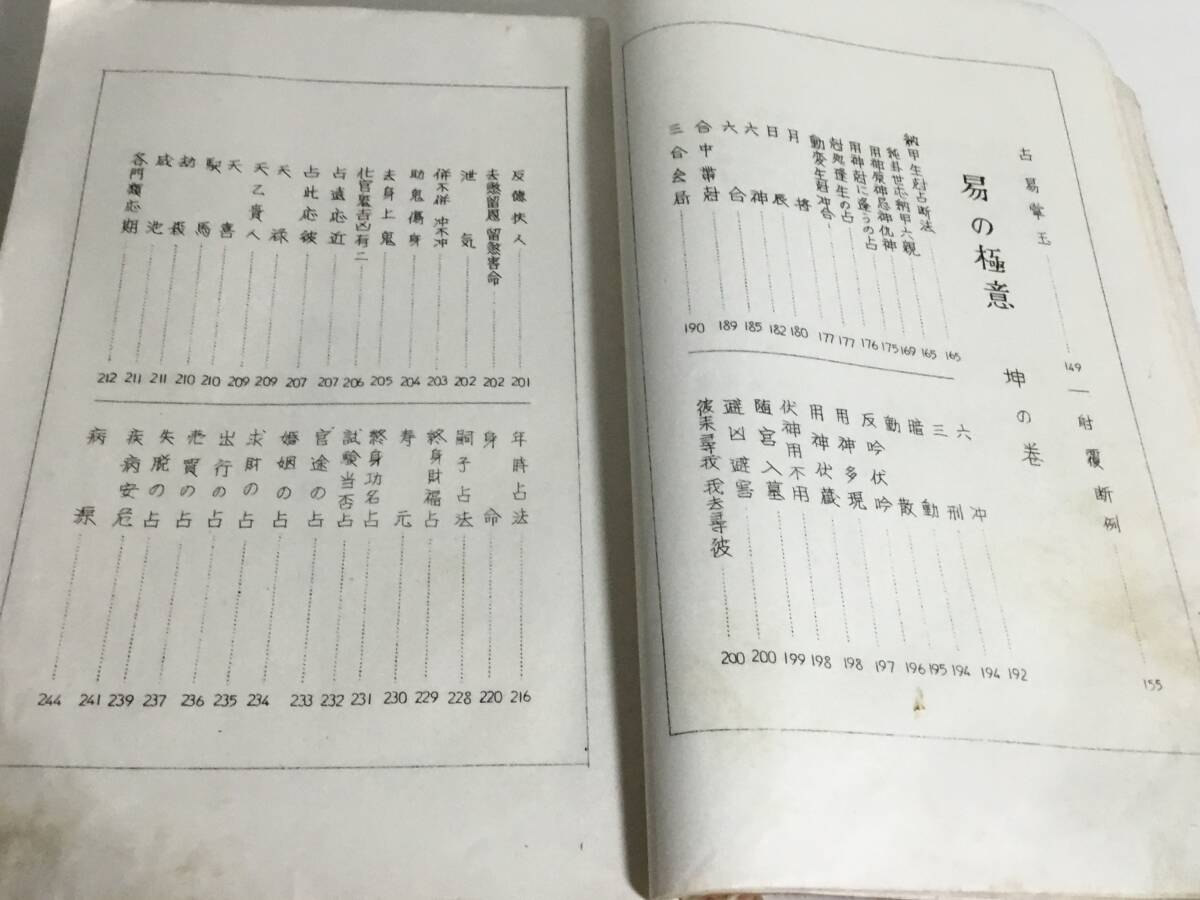 占易掌玉 149
射覆断例 155
易の極意 坤の巻
納甲生尅占断法 165
純卦世応納甲六親 165
用神原神忌神仇神 169
用神尅に逢うの占 175
尅処逢生の占 176
動変生尅冲合 177
月将 177
日辰 180
六神 182
六合 185
合中帯尅 189
三合会局 190
六冲 192
三刑 194
暗動 194
動散 195
反吟伏吟 196
用神多現 197
用神伏蔵 198
伏神用不用 198
随官入墓 199
避凶避害 200
彼来尋我我去尋彼 200
反徳扶人 201
去煞留恩留煞害命 202
泄気 202
併不併冲不冲 203
助鬼傷身 204
去身上鬼 205
化官鬼吉凶有二 206
占遠応近 207
占此応彼 207
天禄 209
天乙貴人 209
天喜 210
駅馬 210
劫殺 211
咸池 211
各門類応期 212
年時占法 216
身命 220
嗣子占法 228
終身財福占 229
寿元 230
終身功名占 231
試験当否占 232
官途の占 233
婚姻の占 234
求財の占 235
出行の占 236
売買の占 237
失脱の占 239
疾病安危 241
病源 244